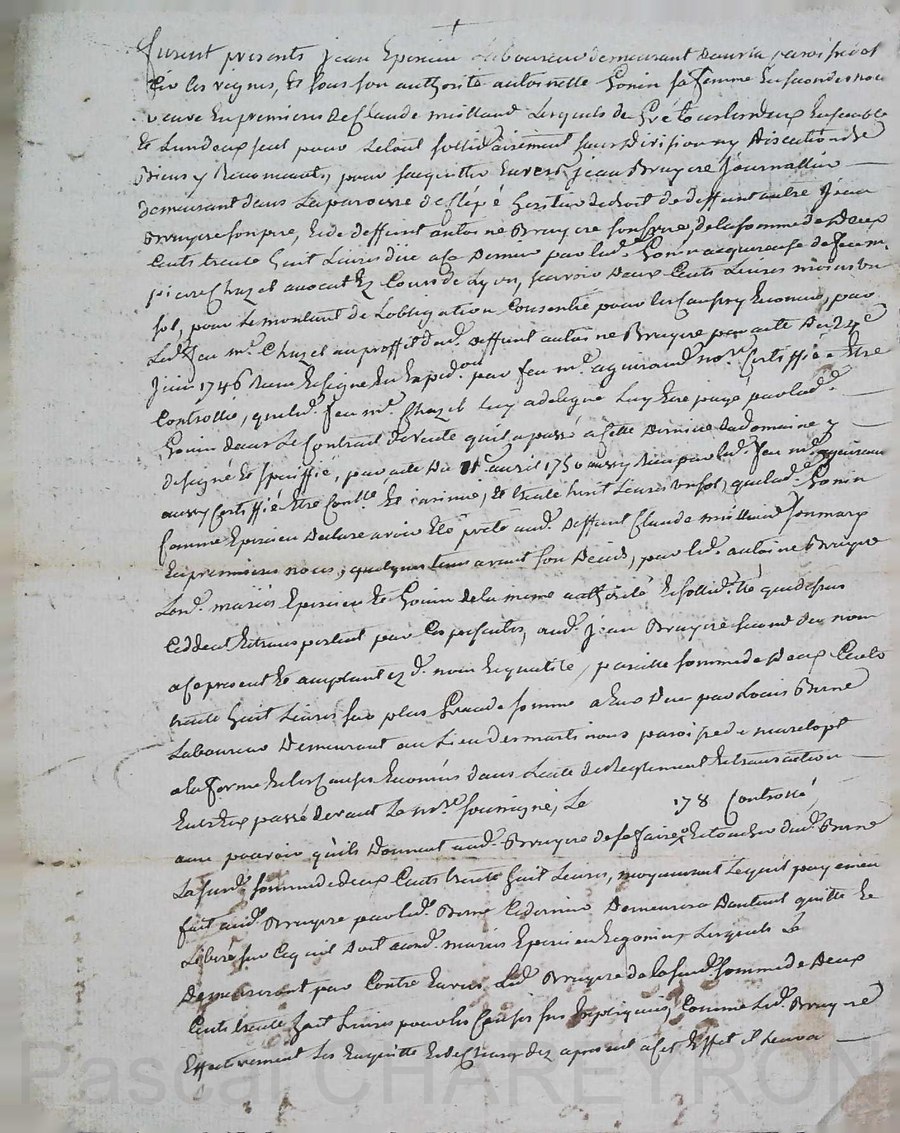 furent presents jean Eperieu Laboureur demeurant dans la paroisse de st
Cir les vignes, Et sous son authorité antoinette Gonin sa femme En secondes noces
veuve En premieres de Claude millaud Lesquels de Gré tous les deux Ensemble
Et L'un deux seul pour Le tout sollidairement sans division ny discution de
Biens y Renoncants, pour s'acquitter Envers jean Bruyere journallier
demeurant dans La paroisse de Clépé heritier de droit de deffunt autre jean
Bruyere son pere, Et de deffunt antoine Bruyere son frere, de la somme de Deux
Cents trente huit Livres due a ce Dernier par lad. Gonin acquereuse de feu me.
pierre Chazel avocat Ez Cours de Lyon, scavoir Deux Cents Livres moins un
sol, pour Le montant de L'obligation Consentie pour les Causes y Enoncées, par
Led. feu me. Chazel au proffit dud. deffunt antoine Bruyere par acte Du 24e
juin 1746 Recu Et signé En Exped.on par feu me. aguiraud no.re Certiffié Etre
Controllé, que led. feu me. Chazel Luy a delegué Luy Etre payé par lad.
Gonin dans Le Contract de vente qu'il a passé a Cette Derniere du domaine y
designé Et speciffié, par acte Du avril 1750 aussy Recu par led. feu me. aguiraud
aussy Certiffié Etre Contllé Et insinué, Et trente huit Livres un sol, que lad. Gonin
femme Eperieu Declare avoir Eté preté aud. deffunt Claude millaud son mary
En premieres noces, quelques tems avant son Deces, par led. antoine Bruyere
Lesd. mariés Eperieu Et Gonin de la meme authorité Et sollid.té que dessus
Ceddent Et transportent par Ces presentes, aud. jean Bruyere second du nom
a Ce present Et acceptant ez d. nom Et qualité, pareille somme de Deux Cents
trente huit Livres sur plus Grande somme a Eux Due par Louis Berne
Laboureur Demeurant au Lieu des martinous paroisse de marclopt
a la forme Et les Causes Enoncées dans L'acte de Reglement Et transaction
Entr'Eux passé devant Le no.re soussigné, Le 178 Controllé
avec pouvoir qu'ils Donnent aud. Bruyere de se faire Et toucher dud. Berne
La susd. somme de deux Cents trente huit Livres, moyennant Lequel payement
fait aud. Bruyere par led. Berne Ce dernier Demeurera D'autant quitte Et
Liberé sur Ce qu'il Doit auxd. mariés Eperieu Et gonin, Lesquels Le
Demeureront par Contre Envers Led. Bruyere de la susd. somme de Deux
Cents trente huit Livres pour les Causes sus Expliquées, Comme Led. Bruyere
Effectivement Les En quitte Et decharge dez a present a Cet Effet il sera
Pascal CHAREYRON